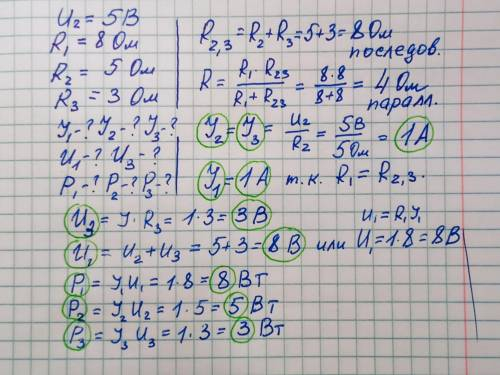 U₂ = 5В
R₁ = 8 Ом
R₂ = 5 Ом
R₃ = 3 Ом
У₁-? У₂-? У₃-?
U₁-? U₃-?
P₁-? P₂-? P₃-?
R₂,₃ = R₂ + R₃ = 5+3 = 8 Ом
последов.
R = R₁ · R₂₃ / R₁ + R₂₃ = 8·8 / 8+8 = 4 Ом
паралл.
У₂ = У₃ = U₂ / R₂ = 5В / 5Ом = 1А
У₁ = 1А т.к. R₁ = R₂,₃.
U₃ = У · R₃ = 1·3 = 3 В
U₁ = R₁У₁
U₁ = U₂ + U₃ = 5+3 = 8 В или U₁ = 1·8 = 8В
P₁ = У₁U₁ = 1·8 = 8 Вт
P₂ = У₂U₂ = 1·5 = 5 Вт
P₃ = У₃U₃ = 1·3 = 3 Вт